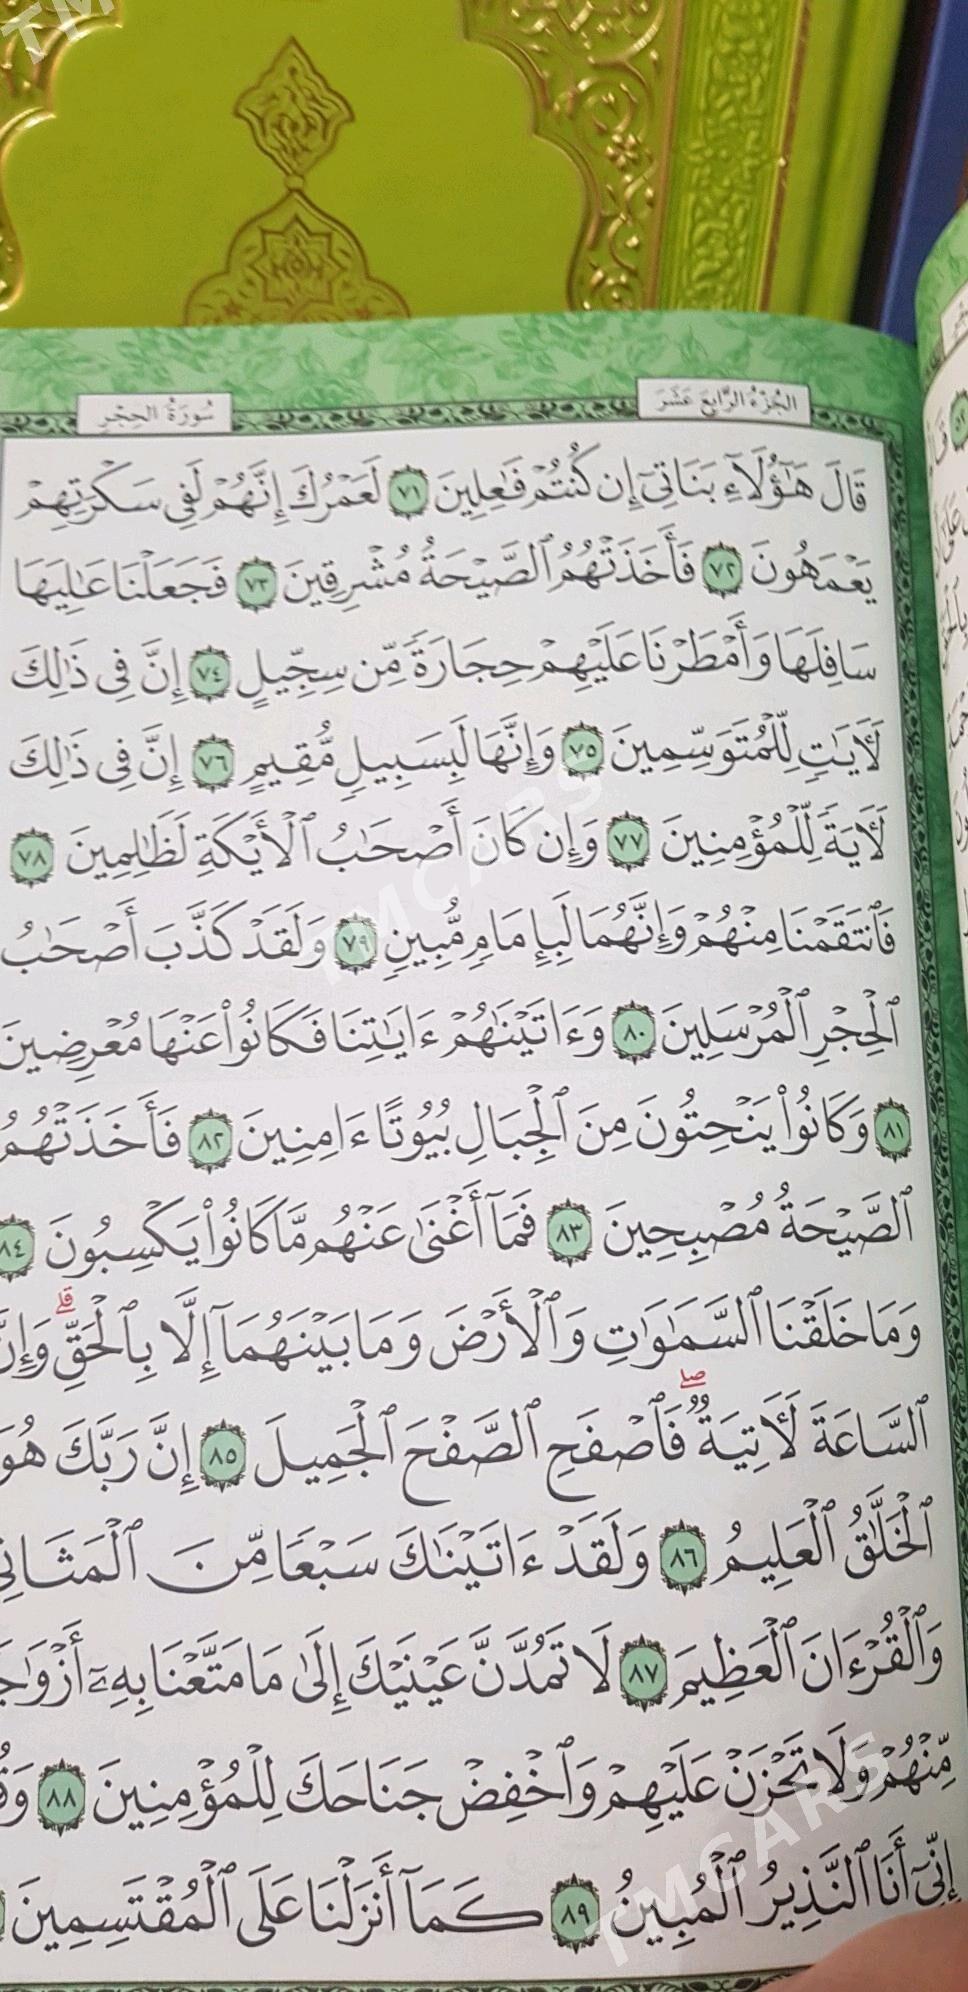 الجُزْءُ الرَّابِعَ عَشَرَ
سُورَةُ الحِجْرِ
قَالَ هَٰٓؤُلَآءِ بَنَاتِىٓ إِن كُنتُمْ فَٰعِلِينَ ٧١ لَعَمْرُكَ إِنَّهُمْ لَفِى سَكْرَتِهِمْ
يَعْمَهُونَ ٧٢ فَأَخَذَتْهُمُ ٱلصَّيْحَةُ مُشْرِقِينَ ٧٣ فَجَعَلْنَا عَٰلِيَهَا
سَافِلَهَا وَأَمْطَرْنَا عَلَيْهِمْ حِجَارَةً مِّن سِجِّيلٍ ٧٤ إِنَّ فِى ذَٰلِكَ
لَءَايَٰتٍ لِّلْمُتَوَسِّمِينَ ٧٥ وَإِنَّهَا لَبِسَبِيلٍ مُّقِيمٍ ٧٦ إِنَّ فِى ذَٰلِكَ
لَءَايَةً لِّلْمُؤْمِنِينَ ٧٧ وَإِن كَانَ أَصْحَٰبُ ٱلْأَيْكَةِ لَظَٰلِمِينَ ٧٨
فَٱنتَقَمْنَا مِنْهُمْ وَإِنَّهُمَا لَبِإِمَامٍ مُّبِينٍ ٧٩ وَلَقَدْ كَذَّبَ أَصْحَٰبُ
ٱلْحِجْرِ ٱلْمُرْسَلِينَ ٨٠ وَءَاتَيْنَٰهُمْ ءَايَٰتِنَا فَكَانُوا۟ عَنْهَا مُعْرِضِينَ
٨١ وَكَانُوا۟ يَنْحِتُونَ مِنَ ٱلْجِبَالِ بُيُوتًا ءَامِنِينَ ٨٢ فَأَخَذَتْهُمُ
ٱلصَّيْحَةُ مُصْبِحِينَ ٨٣ فَمَآ أَغْنَىٰ عَنْهُم مَّا كَانُوا۟ يَكْسِبُونَ ٨٤
وَمَا خَلَقْنَا ٱلسَّمَٰوَٰتِ وَٱلْأَرْضَ وَمَا بَيْنَهُمَآ إِلَّا بِٱلْحَقِّ ۗ وَإِنَّ
ٱلسَّاعَةَ لَءَاتِيَةٌ ۖ فَٱصْفَحِ ٱلصَّفْحَ ٱلْجَمِيلَ ٨٥ إِنَّ رَبَّكَ هُوَ
ٱلْخَلَّٰقُ ٱلْعَلِيمُ ٨٦ وَلَقَدْ ءَاتَيْنَٰكَ سَبْعًا مِّنَ ٱلْمَثَانِى
وَٱلْقُرْءَانَ ٱلْعَظِيمَ ٨٧ لَا تَمُدَّنَّ عَيْنَيْكَ إِلَىٰ مَا مَتَّعْنَا بِهِۦٓ أَزْوَٰجًا
مِّنْهُمْ وَلَا تَحْزَنْ عَلَيْهِمْ وَٱخْفِضْ جَنَاحَكَ لِلْمُؤْمِنِينَ ٨٨
إِنِّىٓ أَنَا ٱلنَّذِيرُ ٱلْمُبِينُ ٨٩ كَمَآ أَنزَلْنَا عَلَى ٱلْمُقْتَسِمِينَ
TMCARS
TMCARS